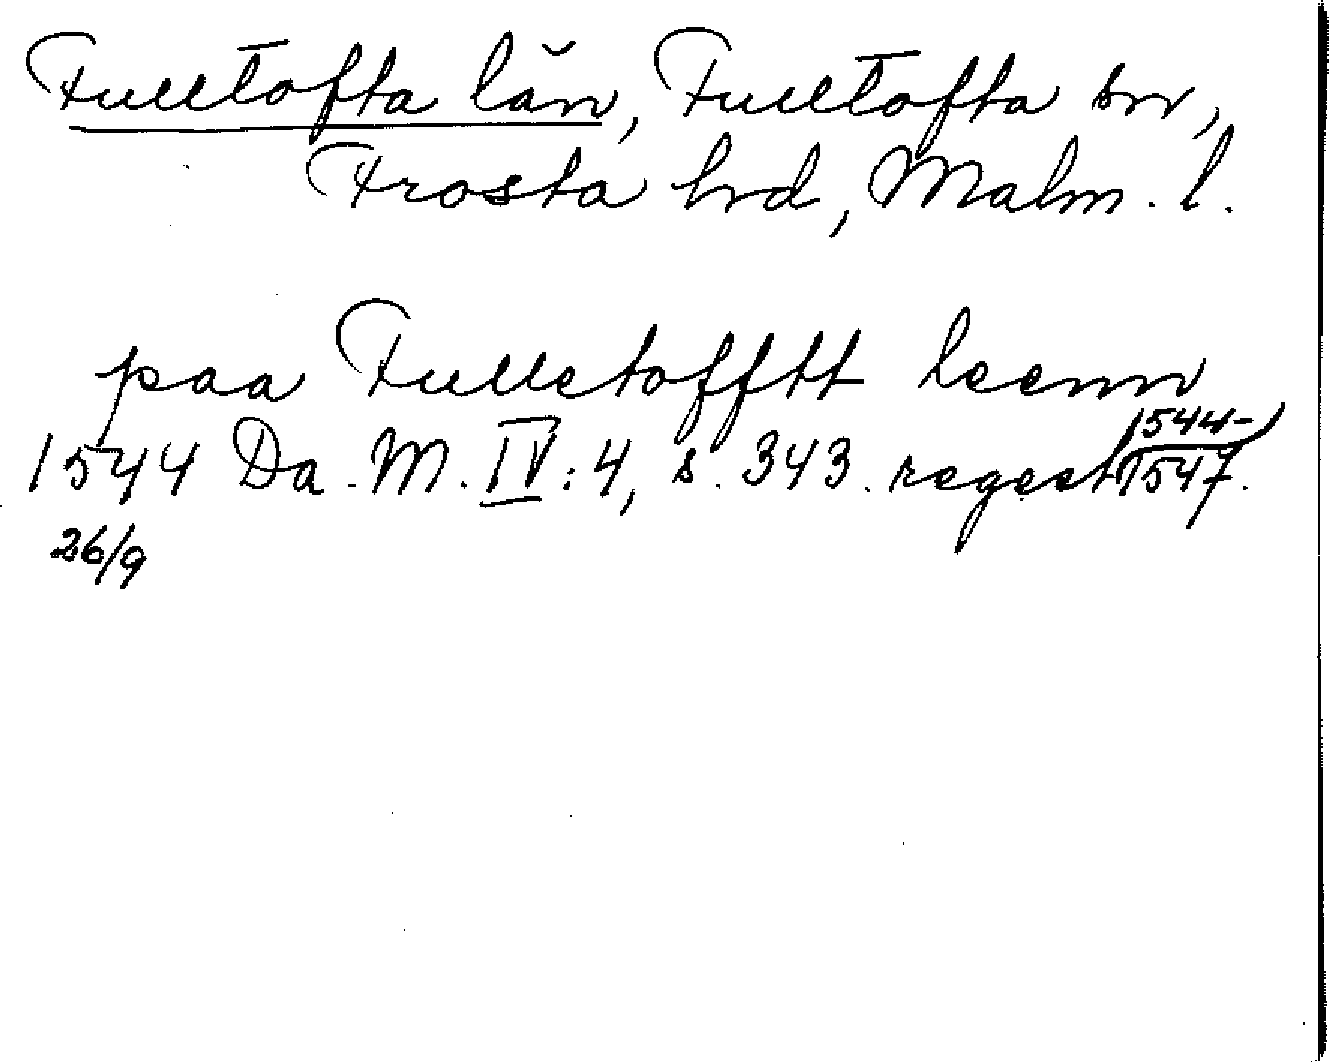 Fulltofta län, Fulltofta sn,
Frosta hrd, Malm. l.
paa Fulletofftt leenn
1544 Da. M. IV:4, s. 343. regest 1544-
1547.
26/9